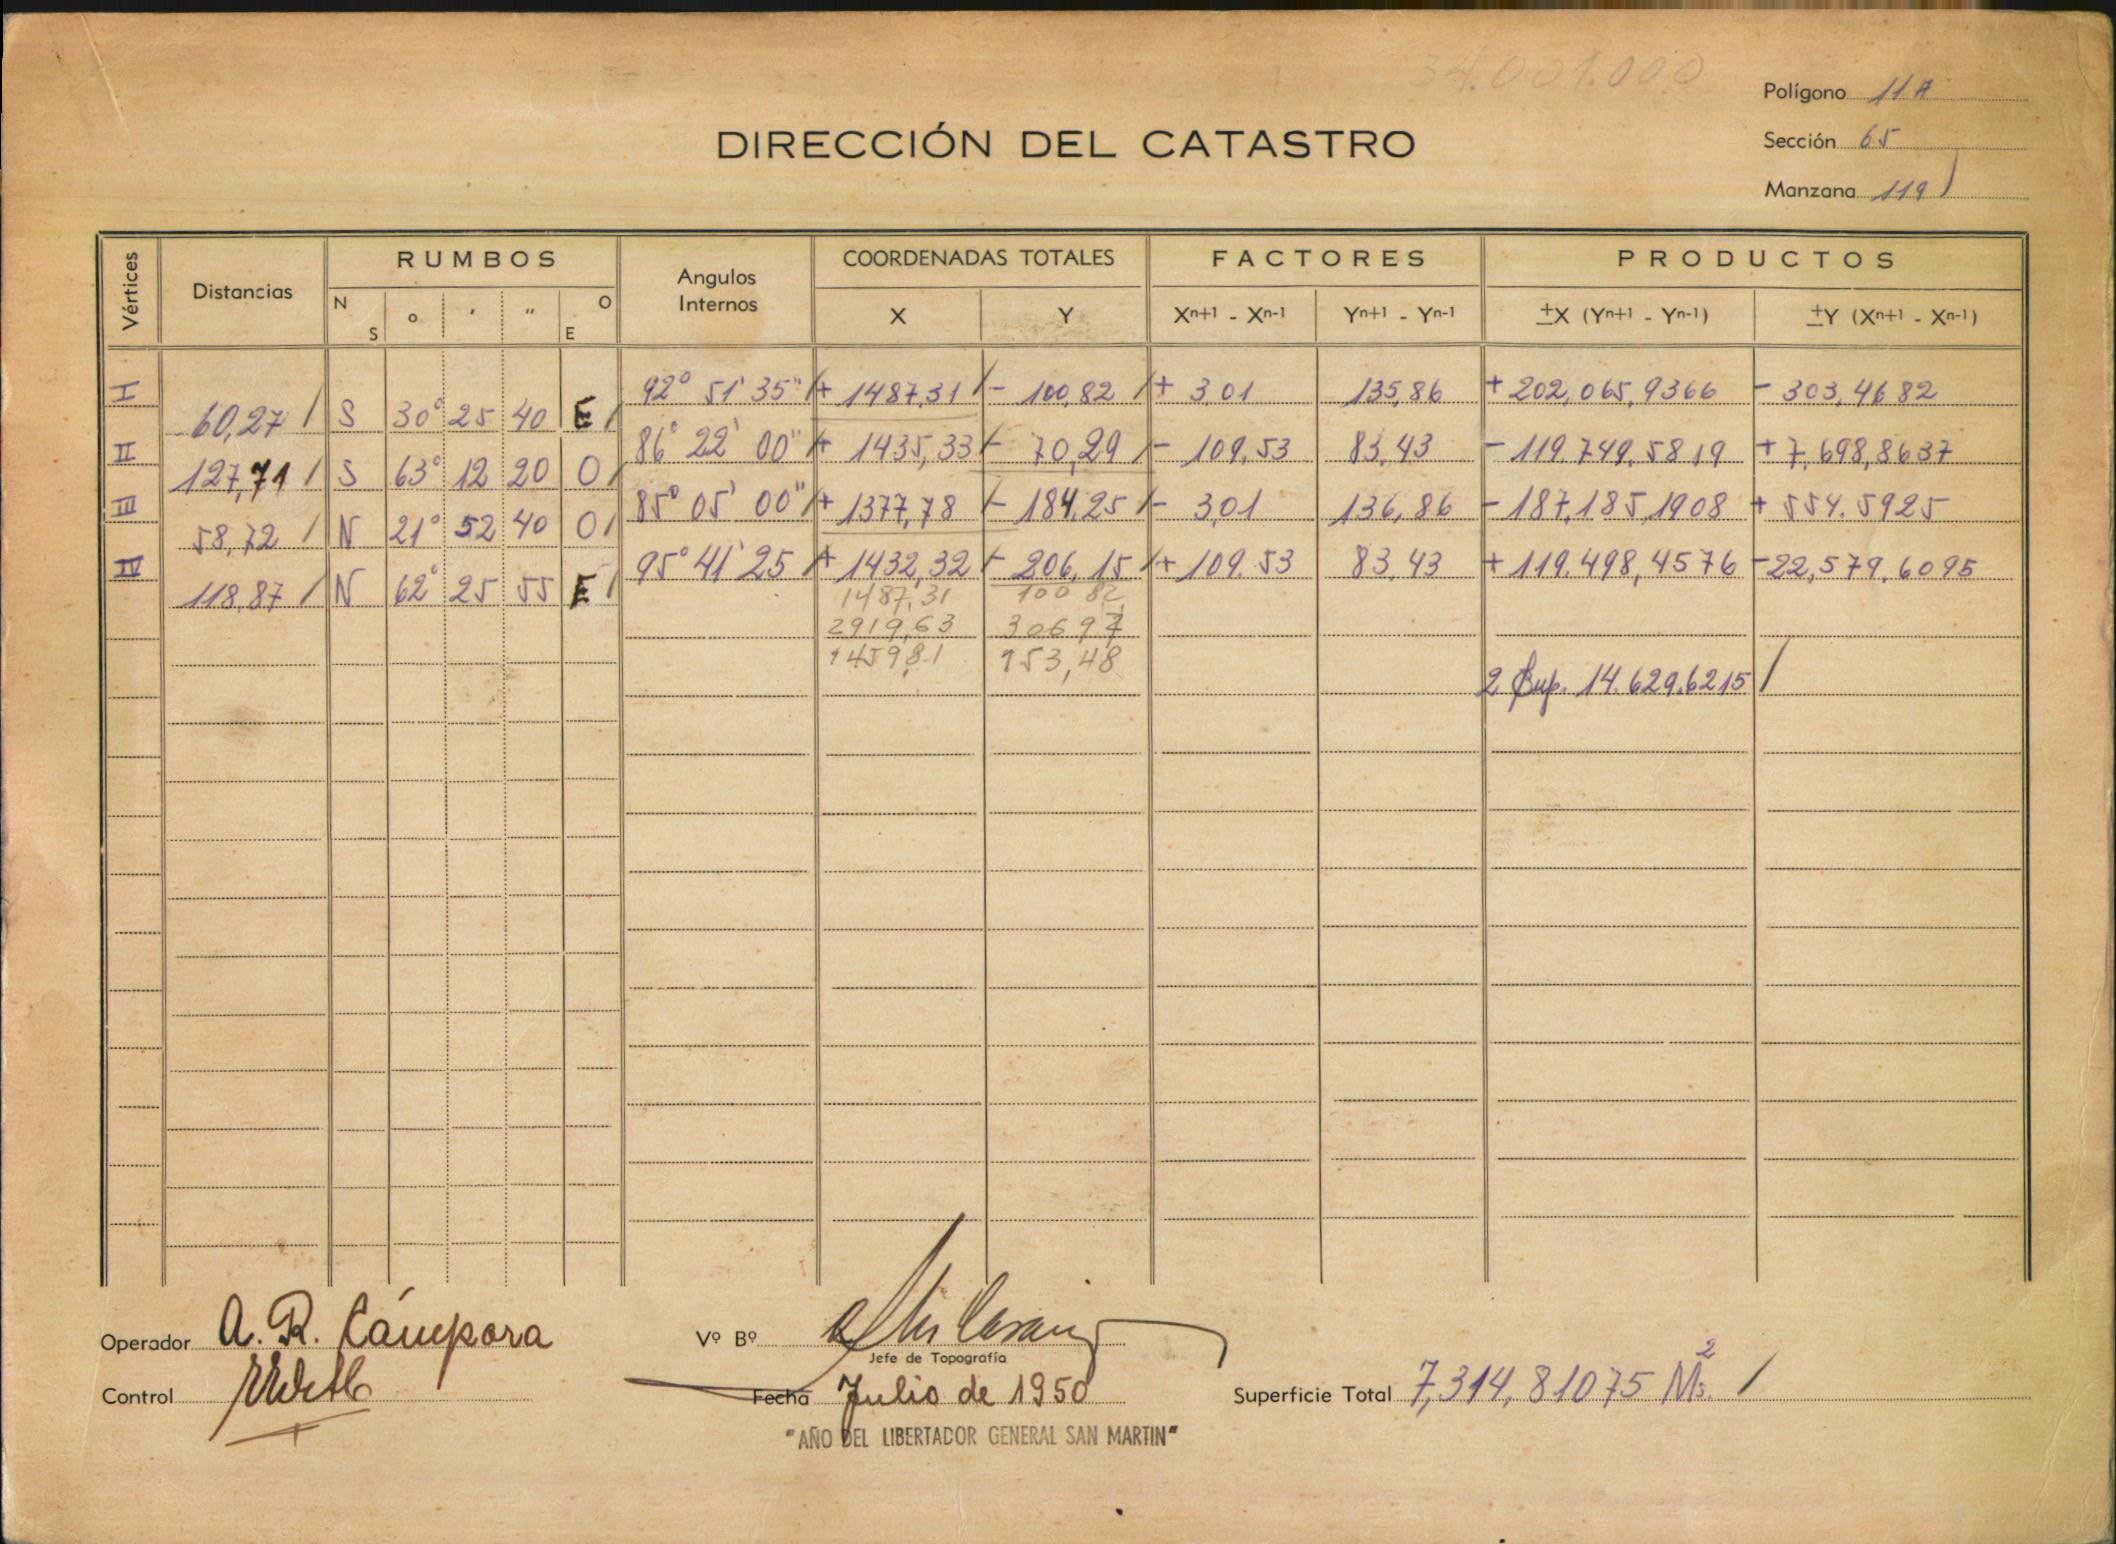 34.001.000
Polígono 11A
DIRECCIÓN DEL CATASTRO
Sección 65
Manzana 119
Vértices Distancias RUMBOS Angulos Internos COORDENADAS TOTALES FACTORES PRODUCTOS
N S o ' " O E X Y Xn+1 - Xn-1 Yn+1 - Yn-1 ±X (Yn+1 - Yn-1) ±Y (Xn+1 - Xn-1)
I 92° 51' 35" + 1487,31 - 100,82 + 3,01 135,86 + 202,065,9366 - 303,4682
60,27 S 30° 25 40 E
II 86° 22' 00" + 1435,33 - 70,29 - 109.53 83,43 - 119.749.5819 + 7,698,8637
127,71 S 63° 12 20 O
III 85° 05' 00" + 1377,78 - 184,25 - 3,01 136,86 - 187,185,1908 + 554.5925
58,72 N 21° 52 40 O
IV 95° 41' 25 + 1432,32 - 206,15 + 109.53 83,43 + 119,498,4576 - 22,579,6095
118,87 N 62° 25 55 E
1487,31 100 82
2919,63 306 97
1459,81 153,48
2 Sup. 14.629,6215
Operador A. R. Cámpora Vº Bº
Jefe de Topografía
Control Fecha Julio de 1950 Superficie Total 7,314,81075 Ms.2
"AÑO DEL LIBERTADOR GENERAL SAN MARTIN"